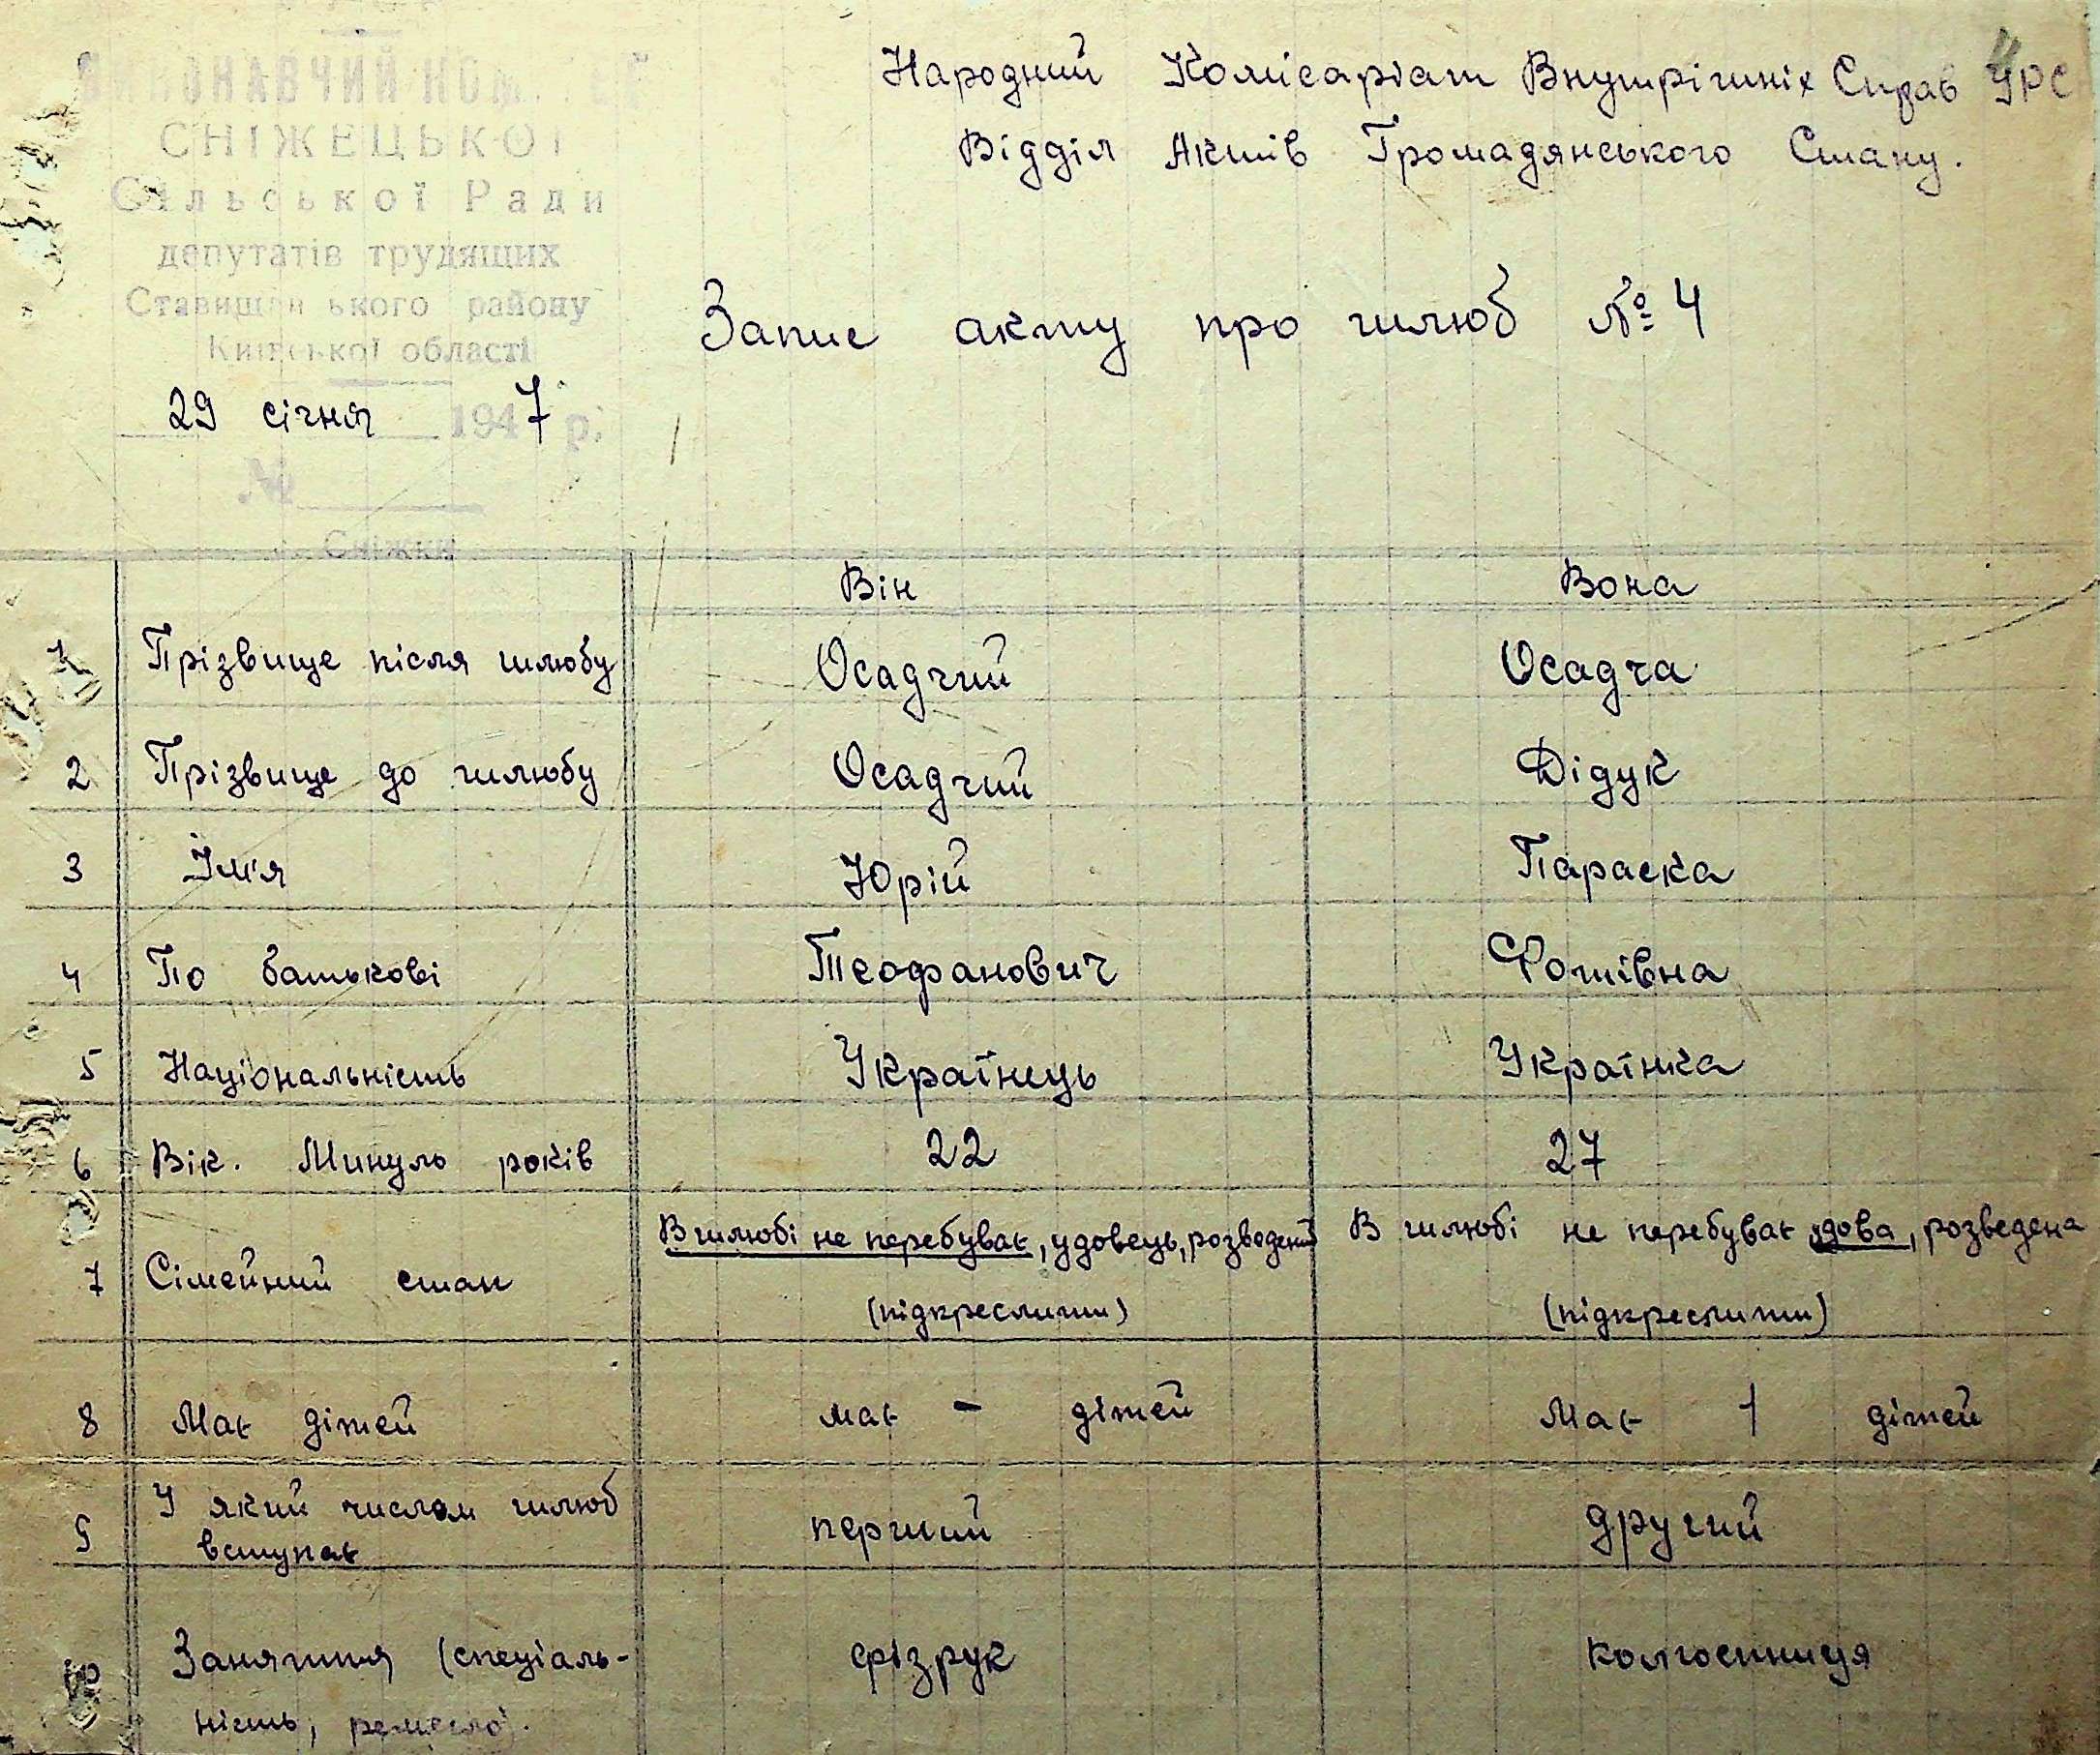 ВИКОНАВЧИЙ КОМІТЕТ
СНІЖЕЦЬКОЇ
Сільської Ради
депутатів трудящих
Ставищанського району
Київської області
29 січня 1947 р.
№
Сніжки
Народний Комісаріат Внутрішніх Справ УРС
Відділ Актів Громадянського Стану.
Запис акту про шлюб № 4
Він Вона
1 Прізвище після шлюбу Осадчий Осадча
2 Прізвище до шлюбу Осадчий Дідук
3 Імʼя Юрій Параска
4 По батькові Теофанович Фотівна
5 Національність Українець Українка
6 Вік. Минуло років 22 27
7 Сімейний стан В шлюбі не перебуває, удовець, розведений В шлюбі не перебуває удова, розведена
(підкреслити) (підкреслити)
8 Має дітей має - дітей Має 1 дітей
9 У який числом шлюб перший другий
вступає
10 Заняття (спеціаль- фізрук колгоспниця
ність, ремесло).